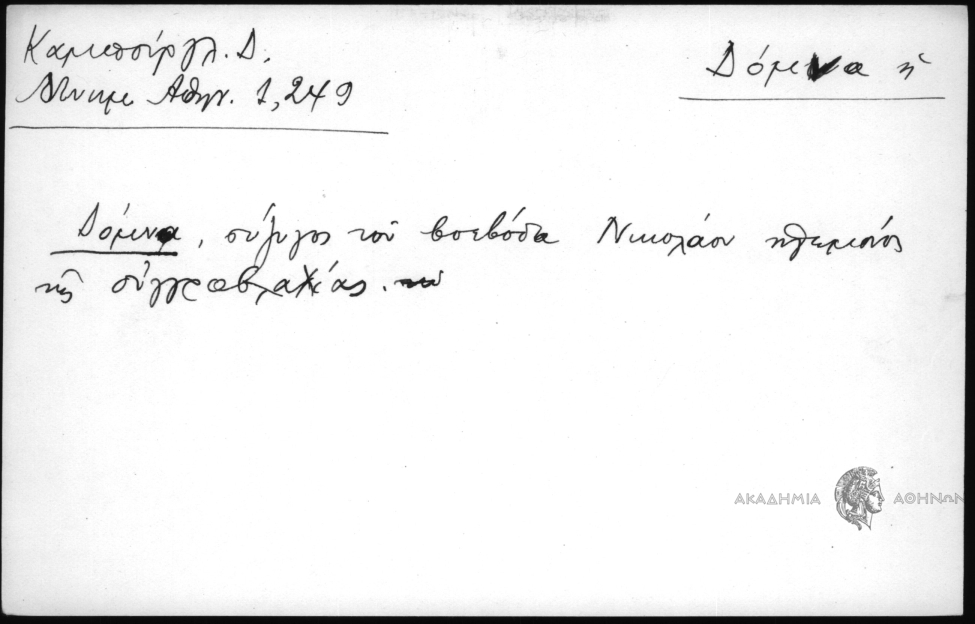 Καμπούρογλ. Δ.
Μνημ. Αθην. 1, 249
Δόμνα ἡ
Δόμνα, σύζυγος τοῦ βοεβόδα Νικολάου ἡγεμόνος
τῆς οὑγγροβλαχίας.
ΑΚΑΔΗΜΙΑ ΑΘΗΝΩΝ